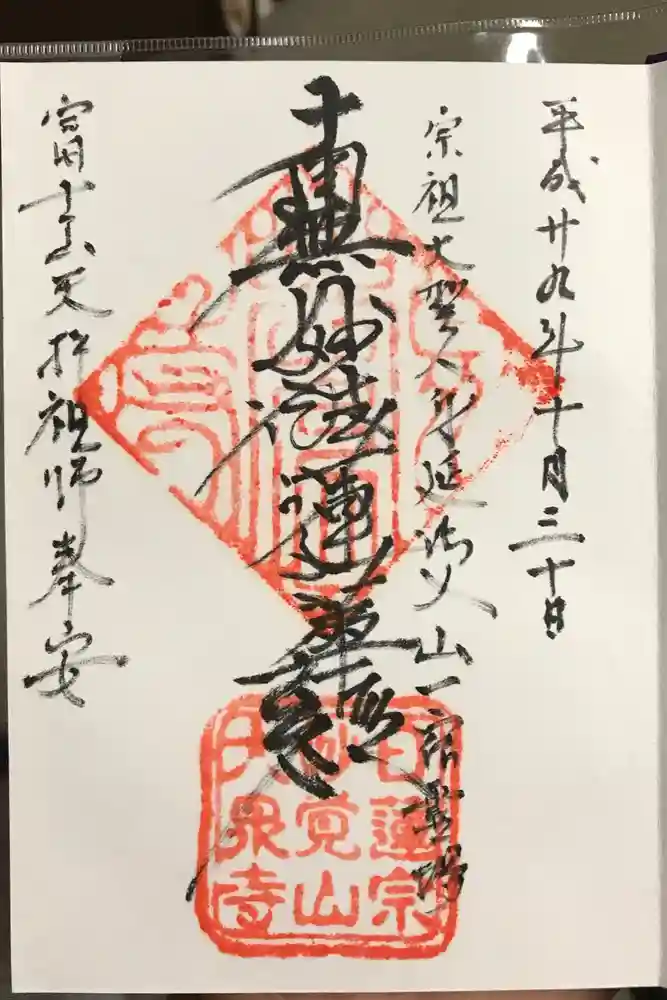 平成廿九年十月三十日
宗祖大聖人身延御入山一宿霊場
南無妙法蓮華経
富士山天拝祖師奉安
日蓮宗
妙覚山
大泉寺